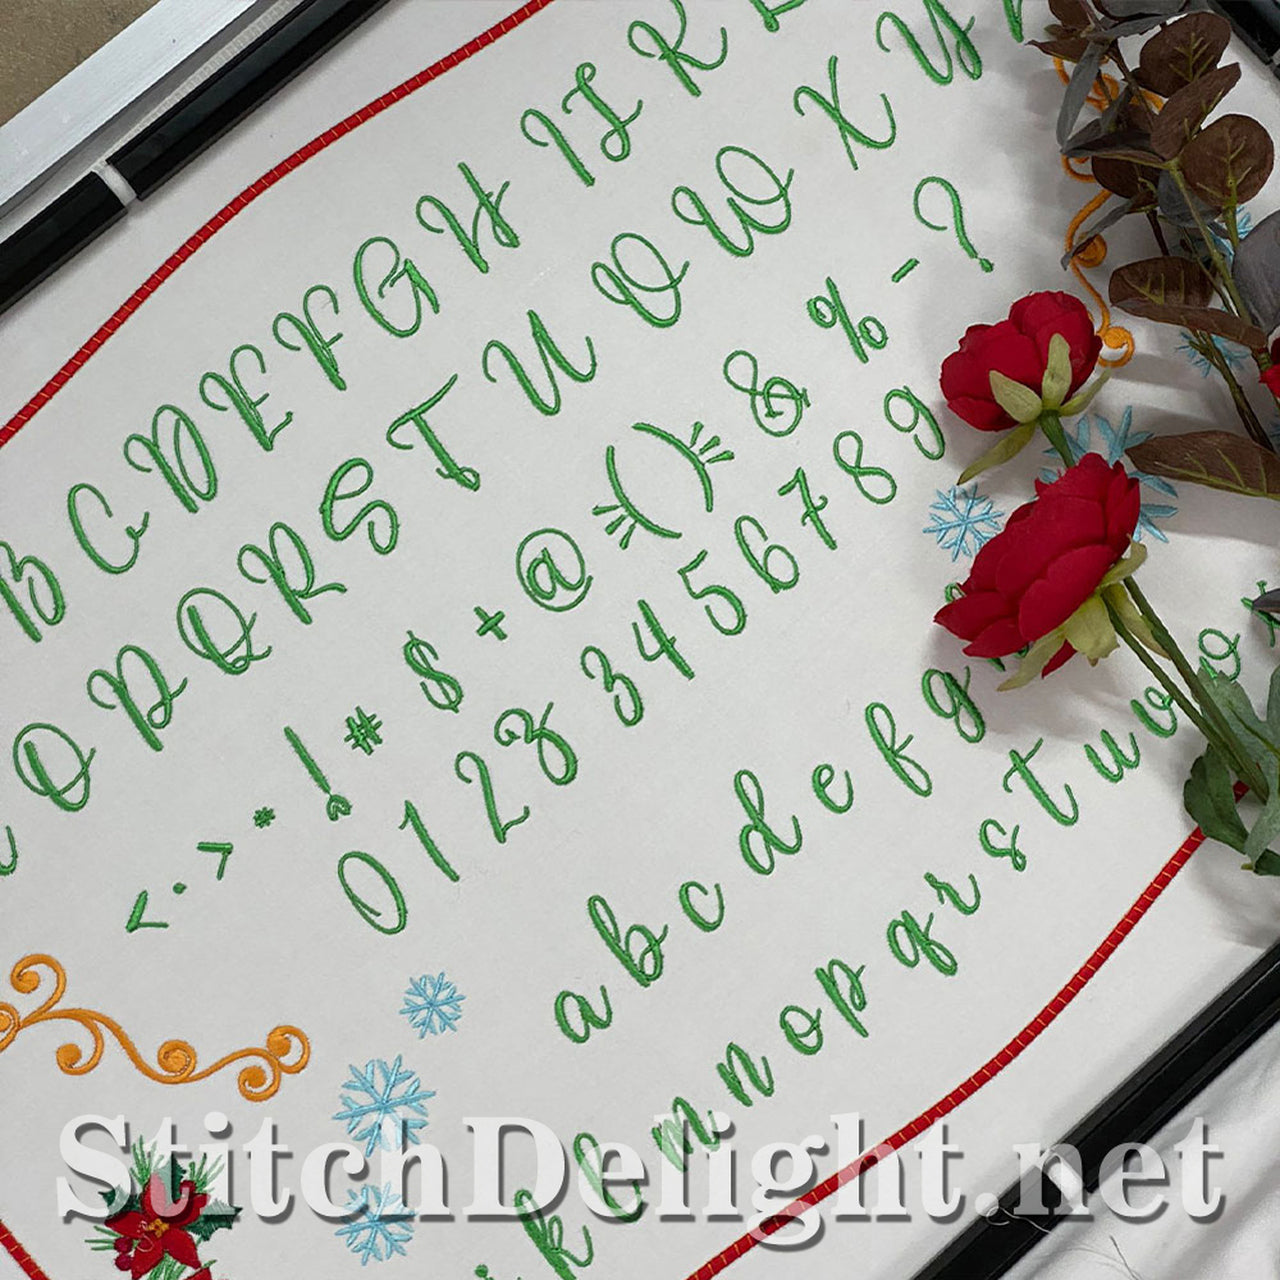 B C D E F G H I K
O P Q R S T U V W X Y
< · > * ! # $ + @ ( ) & % - ?
0 1 2 3 3 4 5 6 7 8 9
a b c d e f g
k l m n o p q r s t u v o
StitchDelight.net